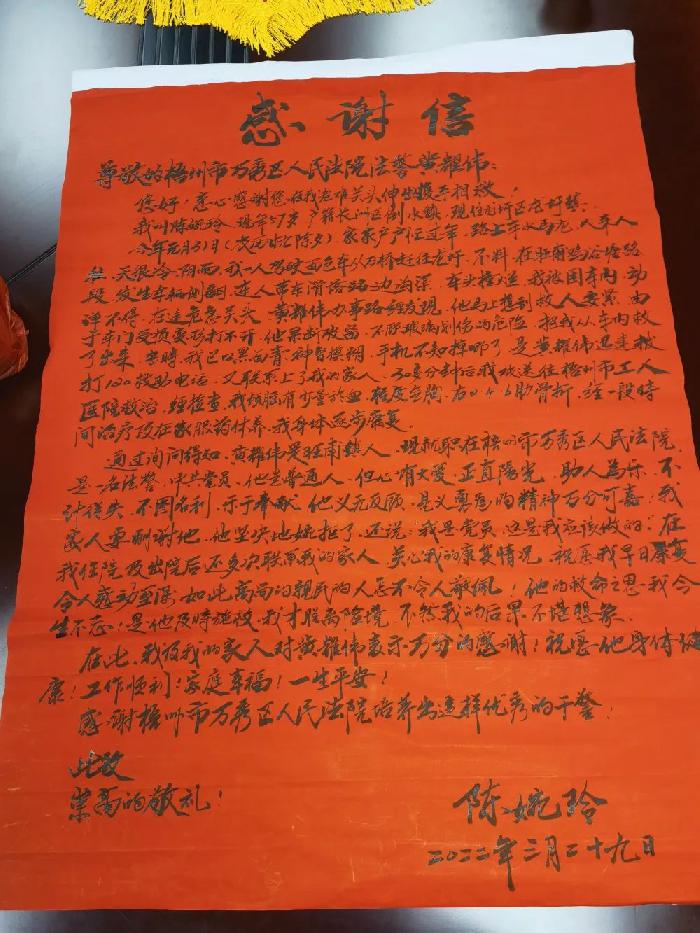 感谢信
尊敬的梧州市万秀区人民法院法警黄耀伟:
您好!衷心感谢您在我危难关头伸出援手相救!
我叫陈婉玲 现年57岁 户籍长洲区倒水镇,现住龙圩区龙圩镇
今年元月31日(农历 除夕)家家户户在过年,路上车水马龙,人车人
天很冷,阴雨,我一人驾驶面包车从万桥赶往龙圩,不料,在 路
段发生车辆侧翻,连人带车滑落路边沟深,车头撞 我被困车内,动
弹不得,在这危急关头 黄耀伟办事路经发现,他马上想到救人要紧,由
于车门受损变形打不开,他果断破窗,不顾玻璃划伤的危险,把我从车内救
了出来,当时,我已口黑面青,神智模糊,手机不知掉哪了,是黄耀伟迅速拨
打120救助电话,又联系上了我的家人,30多分钟后我被送往梧州市工人
医院救治,经检查,我颅脑有少量淤血,轻度气胸,右 4 6助骨折,经一段时
间治疗及在家服药休养,我身体逐步康复。
通过询问得知,黄耀伟是旺甫镇人,现就职在梧州市万秀区人民法院,
是一名法警,中共党员,他是普通人,但心有大爱,正直阳光,助人为乐,不
计得失,不图名利,乐于奉献,他义无反顾,见义勇为的精神百分可嘉!我
家人要酬谢他,他坚决地婉拒了,还说:我是党员,这是我应该做的!在
我住院及出院后还多次联系我的家人 关心我的康复情况,祝愿我早日康复
令人感动至深,如此高尚的亲民的人怎不令人敬佩!他的救命之恩,我今
生不忘!是他及时施救,我才脱离险境,不然我的后果不堪想象。
在此,我及我的家人对黄耀伟表示万分的感谢!祝愿他身体健
康!工作顺利!家庭幸福!一生平安!
感谢梧州市万秀区人民法院培养出这样优秀的干警!
此致
崇高的敬礼!
陈婉玲
2022年三月二十九日